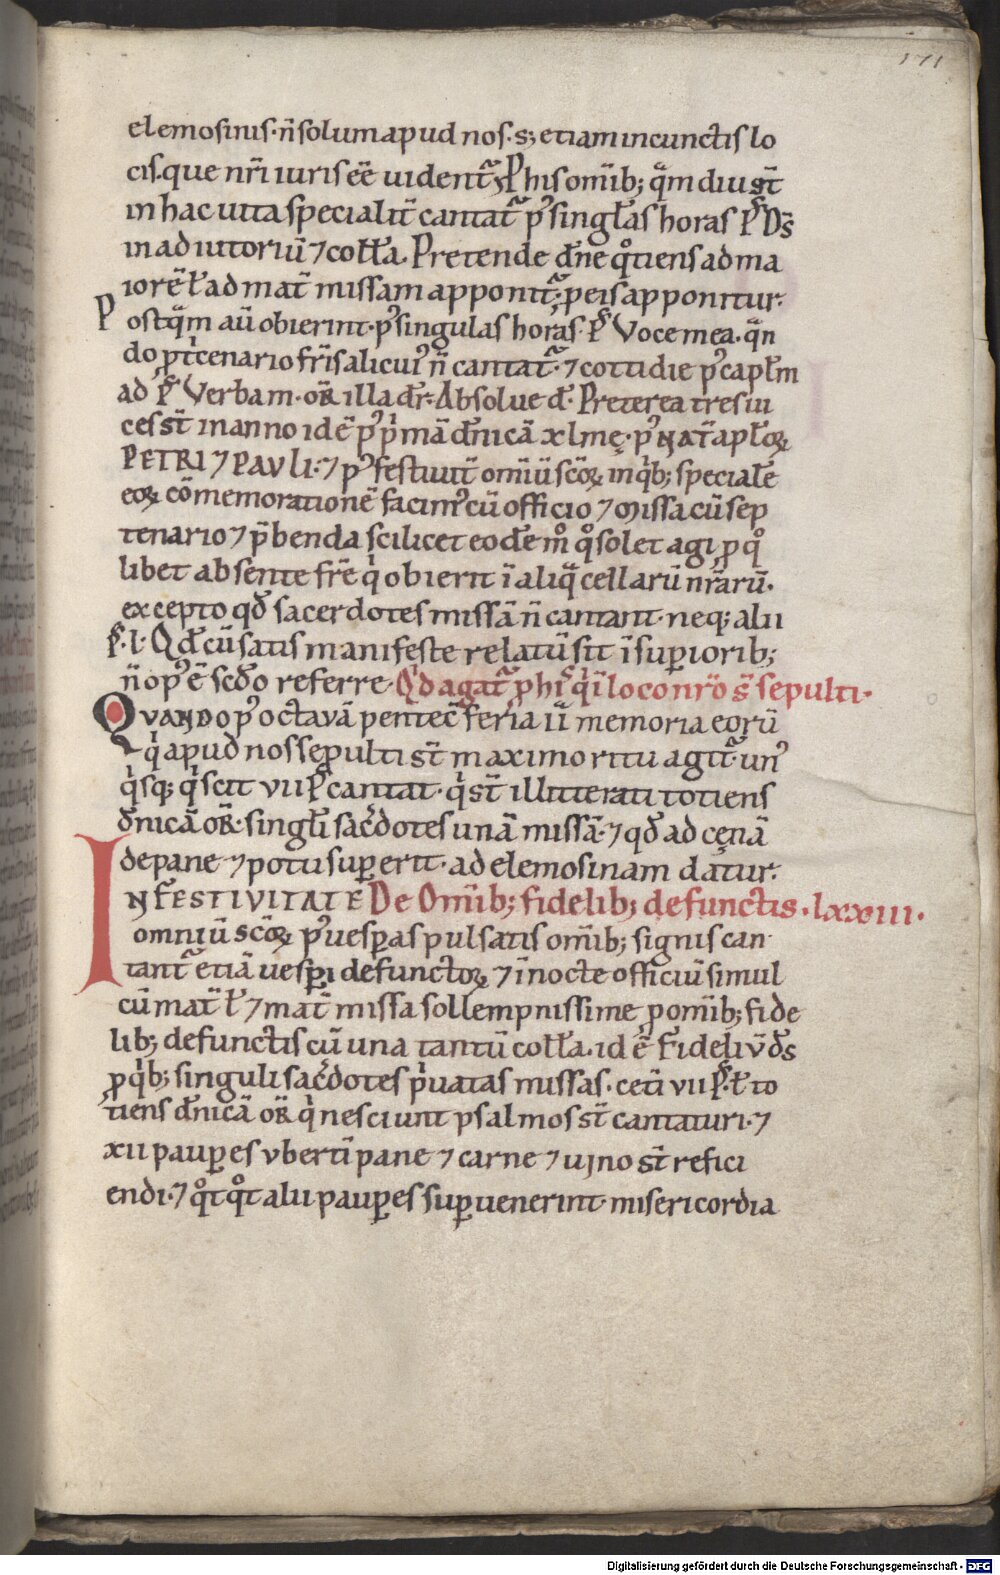 171
elemosinis · n̄ solum apud nos · s; etiam in cunctis lo
cis · que nr̄i iuris eē uident᷑ · P his omīb; q̄m diu st̄
in hac uita specialit̄ cantat᷑ p᷒ singl̄as horas ps̄ · Ds̄
in adiutoriū ⁊ coll̄a · Pretende dn̄e qͦtiens ad ma
iorē ł ad mat̄ missam apponit᷑ · ꝓ eis apponitur ·
Postq̄m aū obierint · p᷒ singulas horas · ps̄ Voce mea · qn̄
do ꝓ tͥcenario fr̄is alicui᷒ n̄ cantat᷑ · ⁊ cottidie p᷒ capl̄m
ad ps̄ Verba m · or̄ illa dr̄ · Absolue d̄ · Preterea tres ui
ces st̄ in anno id ē p᷒ pͥmā dn̄icā xlmę · p᷒ nat̄ apl̄oꝝ
PETRI ⁊ PAVLI · ⁊ p᷒ festiuit̄ omiū sc̄oꝝ inqͥb; speciale
eoꝝ cōmemorationē facim᷒ cū officio ⁊ missa cū sep
tenario ⁊ p̄benda scilicet eodē mͦ qͦ solet agi ꝓ qͦ
libet absente fr̄e qͥ obierit ī aliqͣ cellarū nr̄arū ·
excepto qd̄ sacerdotes missā n̄ cantant · neq; alii
ps̄ · l · Qd̄ cū satis manifeste relatū sit ī superiorib;
n̄ op᷒ ē scd̄o referre · Qͥd agat᷑ ꝓ his qͥ ī loco nr̄o st̄ sepulti ·
QVANDO p᷒ octauā pentec̄ feria ii memoria eorū
qͥ apud nos sepulti st̄ maximo ritu agit᷑ · un᷒
qͥsq; qͥ scit vii ps̄ cantat · qͥ st̄ illitterati totiens
dn̄icā or̄ · singl̄i sac̄dotes unā missā · ⁊ qd̄ ad cęnā
de pane ⁊ potu superit · ad elemosinam datur ·
IN FESTIVITATE De Omīb; fidelib; defunctis · lxxiii ·
omniū sc̄oꝝ p᷒ uesperas pulsatis omīb; signis can
tant᷑ etiā uesperi defunctoꝝ ⁊ ī nocte officiū simul
cū mat̄ l̄ ⁊ mat̄ missa sollempnissime ꝓ omīb; fide
lib; defunctis cū una tantū coll̄a · id ē Fideliū ds̄
ꝓ qͥb; singuli sac̄dotes pͥuatas missas · cet̄i vii ps̄ · ł to
tiens dn̄icā or̄ qͥ nesciunt psalmos st̄ cantaturi · ⁊
xii pauperes vbertī pane ⁊ carne ⁊ uino st̄ refici
endi · ⁊ qͦt qͦt alii pauperes superuenerint · misericordia
Digitalisierung gefördert durch die Deutsche Forschungsgemeinschaft - DFG